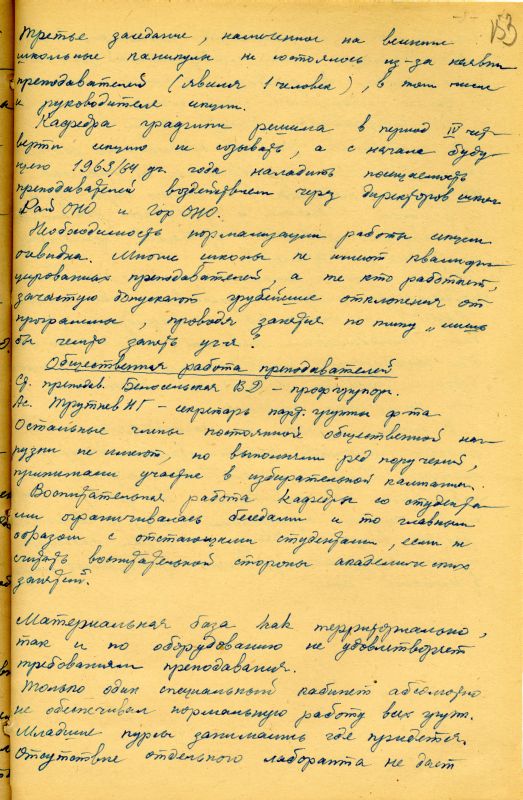 153
Третье заседание, намеченное на весенние
школьные каникулы не состоялось из-за неявки
преподавателей (явился 1 человек), в том числе
и руководителя секции.
Кафедра графики решила в период IV чет-
верти секцию не созывать, а с начала буду-
щего 1963/64 уч. года наладить посещаемость
преподавателей воздействием через директоров школ
Рай ОНО и Гор ОНО.
Необходимость нормализации работы секции
очевидна. Многие школы не имеют квалифи-
цированных преподавателей, а те кто работает,
зачастую допускают грубейшие отклонения от
программы, проводя занятия по типу „лишь
бы чем-то занять уч-ся“.
Общественная работа преподавателей
Ст. преподав. Белосельская В.Д. – профгрупорг.
Ас. Трутнев НГ – секретарь парт. группы ф-та
Остальные члены постоянной общественной наг-
рузки не имеют, но выполняли ряд поручений,
принимали участие в избирательной кампании.
Воспитательная работа кафедры со студента-
ми ограничивалась беседами и то главным
образом с отстающими студентами, если не
считать воспитательной стороны академических
занятий.
Материальная база как территориально,
так и по оборудованию не удовлетворяет
требованиям преподавания.
Только один специальный кабинет абсолютно
не обеспечивал нормальную работу всех групп.
Младшие курсы занимались где придется.
Отсутствие отдельного лаборанта не дает